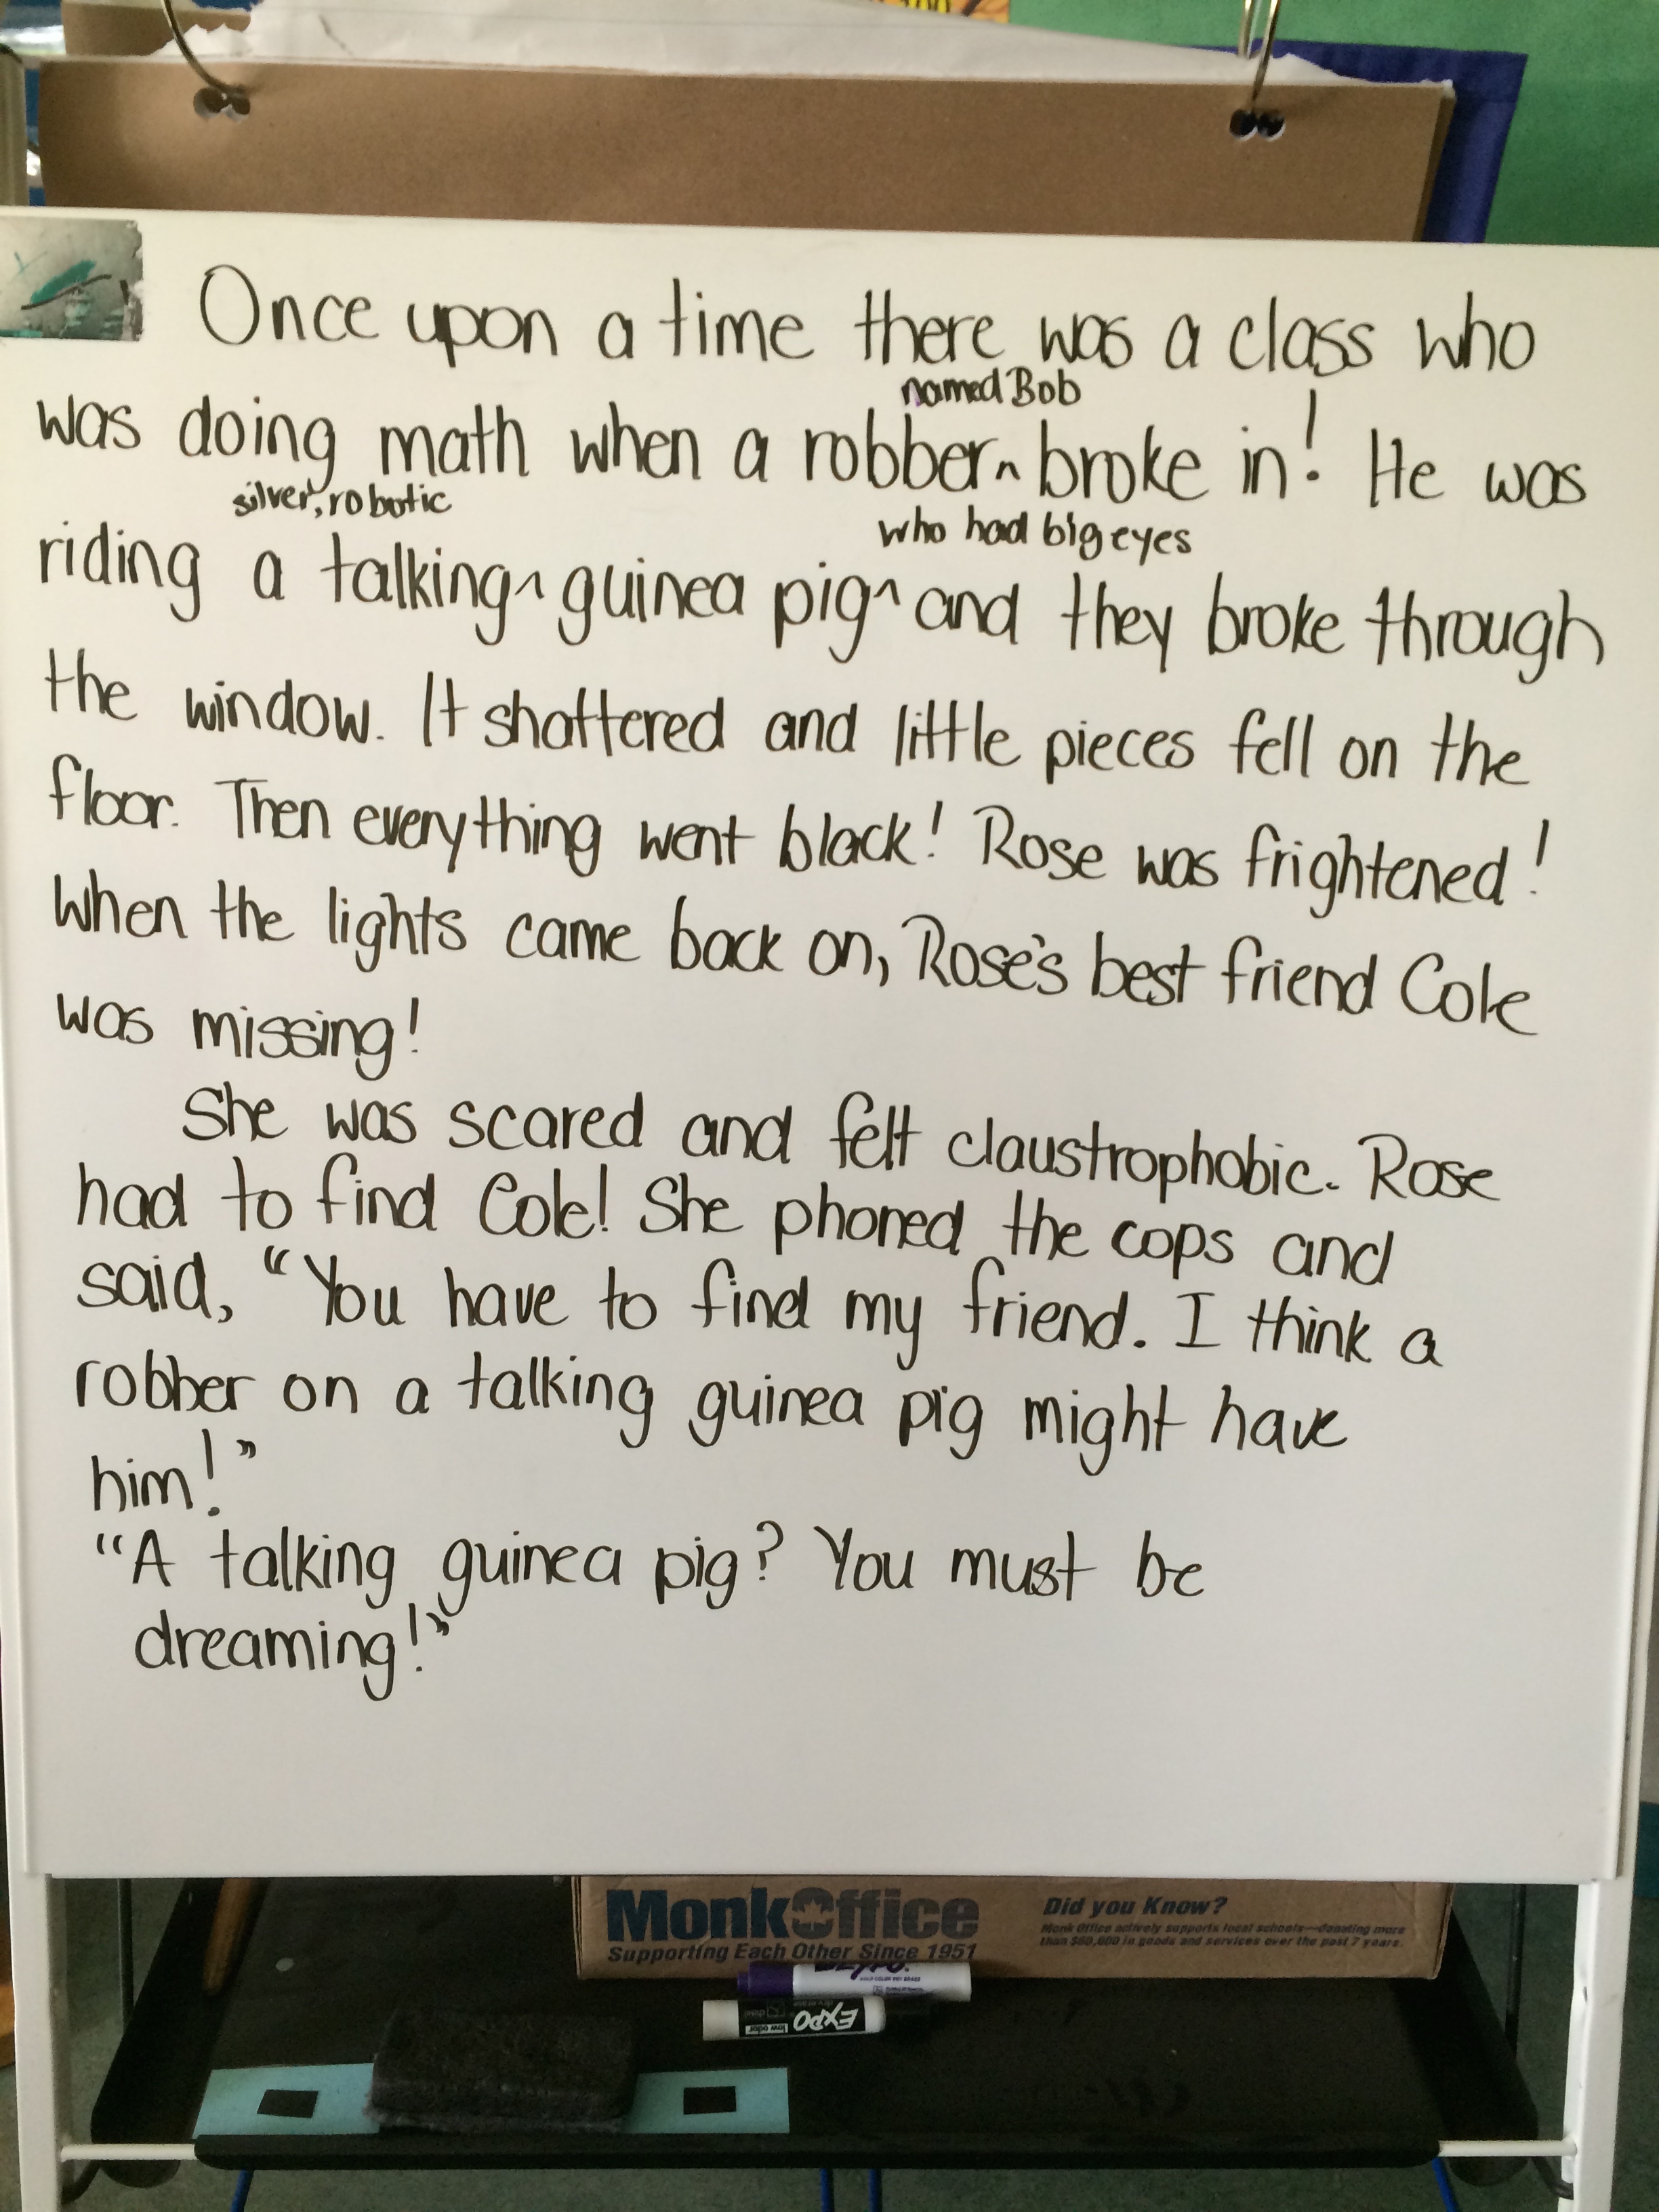 Once upon a time there was a class who
named Bob
was doing math when a robber^ broke in! He was
silver, robotic
who had big eyes
riding a talking^ guinea pig^ and they broke through
the window. It shattered and little pieces fell on the
floor. Then everything went black! Rose was frightened!
When the lights came back on, Rose's best friend Cole
was missing!
She was scared and felt claustrophobic. Rose
had to find Cole! She phoned the cops and
said, "You have to find my friend. I think a
robber on a talking guinea pig might have
him!"
"A talking guinea pig? You must be
dreaming!"
MonkOffice
Supporting Each Other Since 1951
Did you Know?
Monk Office actively supports local schools—donating more
than $60,600 in goods and services over the past 7 years.
EXPO
low odor